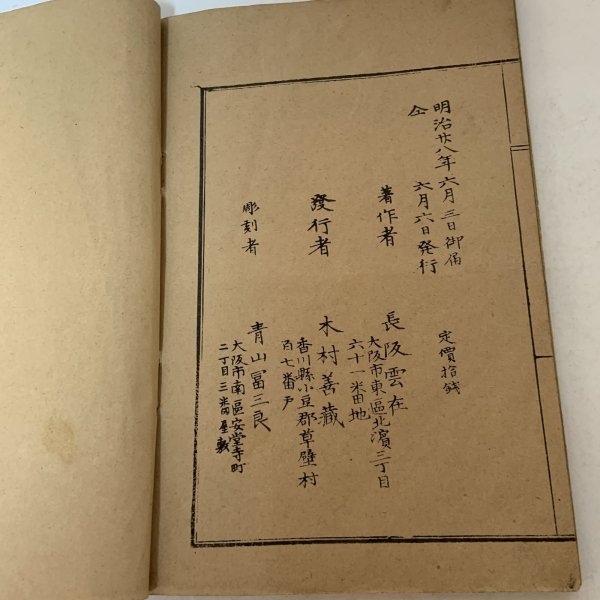 明治廿八年六月三日御届
仝 六月六日発行
定價拾錢
著作者 長阪雲在
大阪市東區北濱三丁目
六十一番地
發行者 木村善蔵
香川縣小豆郡草壁村
百七番戸
彫刻者 青山冨三良
大阪市南區安堂寺町
二丁目三番屋敷